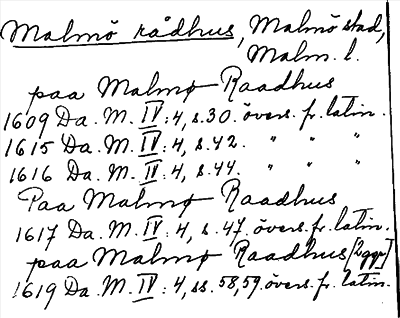 Malmö rådhus, Malmö stad,
Malm. l.
paa Malmø Raadhus
1609 Da. M. IV: 4, s. 30. övers. fr. latin.
1615 Da. M. IV: 4, s. 42. " " "
1616 Da. M. IV: 4, s. 44. " " "
Paa Malmø Raadhus
1617 Da. M. IV: 4, s. 47. övers. fr. latin.
paa Malmø Raadhus [2 ggr]
1619 Da. M. IV: 4, ss. 58, 59. övers. fr. latin.